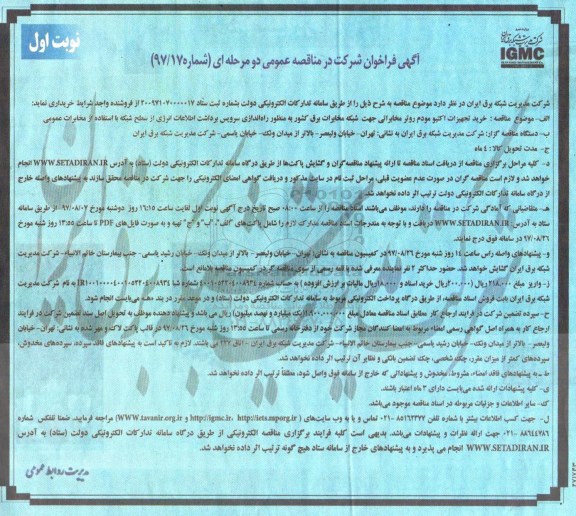 نوبت اول
شرکت مدیریت شبکه برق ایران
IGMC
آگهی فراخوان شرکت در مناقصه عمومی دو مرحله ای (شماره ۹۷/۱۷)
شرکت مدیریت شبکه برق ایران در نظر دارد موضوع مناقصه به شرح ذیل را از طریق سامانه تدارکات الکترونیکی دولت بشماره ثبت ستاد ۲۰۰۹۷۱۰۷۰۰۰۰۰۱۷ از فروشنده واجد شرایط خریداری نماید:
الف- موضوع مناقصه : خرید تجهیزات اکتیو مودم روتر مخابراتی جهت شبکه مخابرات برق کشور به منظور راه‌اندازی سرویس برداشت اطلاعات انرژی از سطح شبکه با استفاده از مخابرات عمومی
ب- دستگاه مناقصه گزار: شرکت مدیریت شبکه برق ایران به نشانی: تهران - خیابان ولیعصر - بالاتر از میدان ونک- خیابان یاسمی- شرکت مدیریت شبکه برق ایران
ج- مدت تحویل کالا : ۴ ماه
د- کلیه مراحل برگزاری مناقصه از دریافت اسناد مناقصه تا ارائه پیشنهاد مناقصه‌گران و گشایش پاکت‌ها از طریق درگاه سامانه تدارکات الکترونیکی دولت (ستاد) به آدرس WWW.SETADIRAN.IR انجام
خواهد شد و لازم است مناقصه گران در صورت عدم عضویت قبلی، مراحل ثبت نام در سایت مذکور و دریافت گواهی امضای الکترونیکی را جهت شرکت در مناقصه محقق سازند به پیشنهادهای واصله خارج
از درگاه سامانه تدارکات الکترونیکی دولت ترتیب اثر داده نخواهد شد.
هـ- متقاضیانی که آمادگی شرکت در مناقصه را دارند، موظف می‌باشند اسناد مناقصه را از ساعت ۰۸:۰۰ صبح تاریخ درج آگهی نوبت اول لغایت ساعت ۱۶:۱۵ روز دوشنبه مورخ ۹۷/۰۸/۰۷ از طریق سامانه
ستاد به آدرس WWW.SETADIRAN.IR دریافت و با توجه به مندرجات اسناد مناقصه مدارک لازم را شامل پاکت‌های "الف"، "ب" و "ج" تهیه و به صورت فایل‌های PDF تا ساعت ۱۳:۵۵ روز شنبه مورخ
۹۷/۰۸/۲۶ در سامانه فوق درج نمایند.
و- پیشنهادهای واصله راس ساعت ۱۴ روز شنبه مورخ ۹۷/۰۸/۲۶ در کمیسیون مناقصه به نشانی: تهران- خیابان ولیعصر - بالاتر از میدان ونک- خیابان رشید یاسمی- جنب بیمارستان خاتم الانبیاء- شرکت مدیریت
شبکه برق ایران گشایش خواهد شد. حضور حداکثر ۲ نفر نماینده معرفی شده با نامه رسمی از سوی مناقصه گر در کمیسیون مناقصه بلامانع است.
ز- واریز مبلغ ۲۱۸.۰۰۰ ریال (۲۰۰.۰۰۰ ریال خرید اسناد و ۱۸.۰۰۰ ریال مالیات بر ارزش افزوده) به حساب شماره به نام شرکت مدیریت
شبکه برق ایران بابت فروش اسناد مناقصه، از طریق درگاه پرداخت الکترونیکی مربوط به سامانه تدارکات الکترونیکی دولت (ستاد) و در موعد مقرر در بند «هـ» می‌بایست انجام شود.
ح- سپرده تضمین شرکت در فرایند ارجاع کار مطابق اسناد مناقصه معادل مبلغ ۱.۹۰۰.۰۰۰.۰۰۰ (یک میلیارد و نهصد میلیون) ریال می باشد و پیشنهاد دهنده موظف به تحویل اصل سند تضمین شرکت در فرایند
ارجاع کار به همراه اصل گواهی رسمی امضاء مربوط به امضاء کنندگان مجاز شرکت خود از دفترخانه رسمی تا ساعت ۱۳:۵۵ روز شنبه مورخ ۹۷/۰۸/۲۶ در قالب پاکت لاک و مهر شده به نشانی: تهران- خیابان
ولیعصر- بالاتر از میدان ونک- خیابان رشید یاسمی- جنب بیمارستان خاتم الانبیاء - شرکت مدیریت شبکه برق ایران - اتاق می باشند. لازم به تاکید است به پیشنهادهای فاقد سپرده، سپرده‌های مخدوش،
سپرده‌های کمتر از میزان مقرر، چک شخصی، چک تضمین بانکی و نظایر آن ترتیب اثر داده نخواهد شد.
ط- به پیشنهادهای فاقد امضاء، مشروط، مخدوش و پیشنهاداتی که خارج از سامانه فوق واصل شود، مطلقاً ترتیب اثر داده نخواهد شد.
ی- کلیه پیشنهادات ارائه شده می‌بایست دارای ۳ ماه اعتبار باشند.
ک- سایر اطلاعات و جزئیات مربوطه در اسناد مناقصه موجود می‌باشد.
ل- جهت کسب اطلاعات بیشتر با شماره تلفن ۸۵۱۶۲۳۷۷-۰۲۱ تماس و یا به وب سایت‌های ( http://iets.mporg.ir ،http://igmc.ir و WWW.tavanir.org.ir) مراجعه فرمایید. ضمنا تلفکس شماره
۸۸۶۴۴۷۸۶-۰۲۱ جهت ارائه نظرات و پیشنهادات می‌باشد. بدیهی است کلیه فرایند برگزاری مناقصه الکترونیکی از طریق درگاه سامانه تدارکات الکترونیکی دولت (ستاد) به آدرس
WWW.SETADIRAN.IR انجام می پذیرد و به پیشنهادهای خارج از سامانه ستاد هیچ گونه ترتیب اثر داده نخواهد شد.
مدیریت روابط عمومی